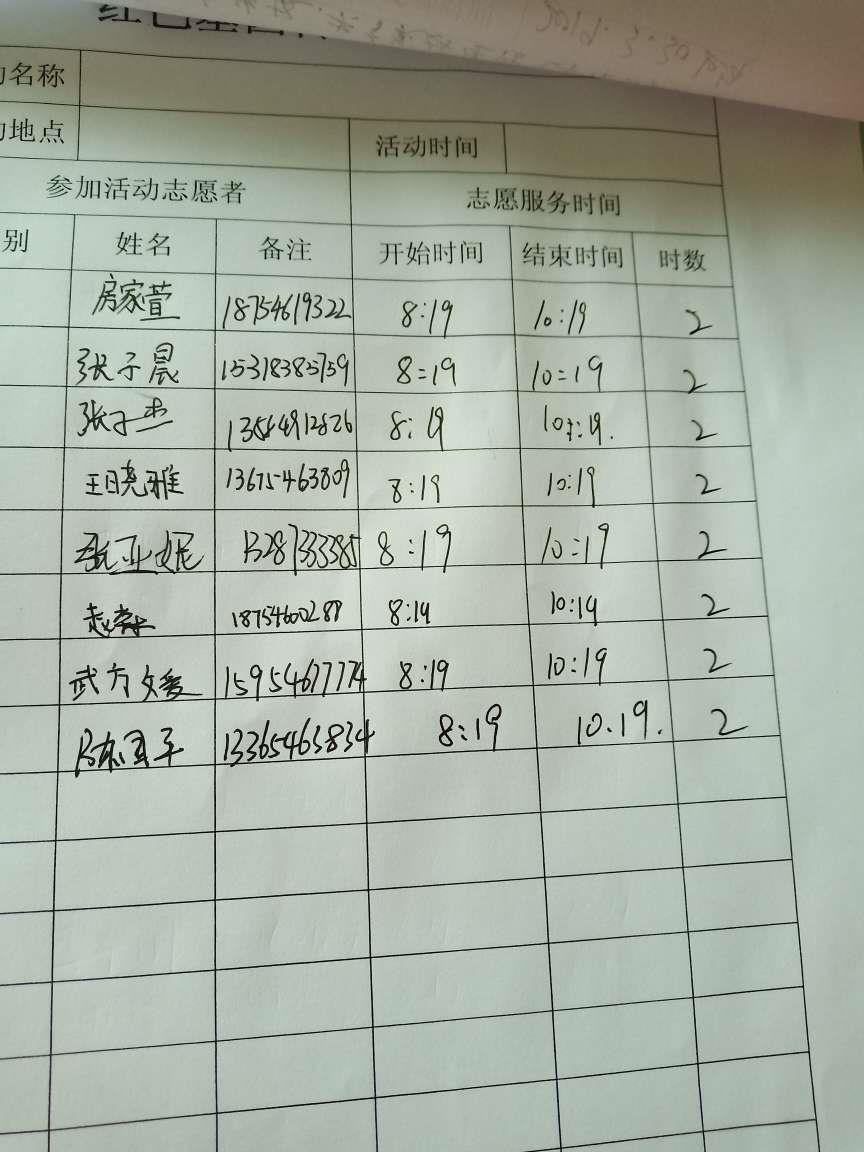 名称
地点 活动时间
参加活动志愿者 志愿服务时间
别 姓名 备注 开始时间 结束时间 时数
房家萱 18754619322 8:19 10:19 2
张子晨 15318385759 8:19 10:19 2
张子杰 8:19 10:19. 2
王晓雅 13675463809 8:19 10:19 2
张亚妮 13287333385 8:19 10:19 2
赵 8:19 10:19 2
武方媛 15954677774 8:19 10:19 2
13365463834 8:19 10.19. 2